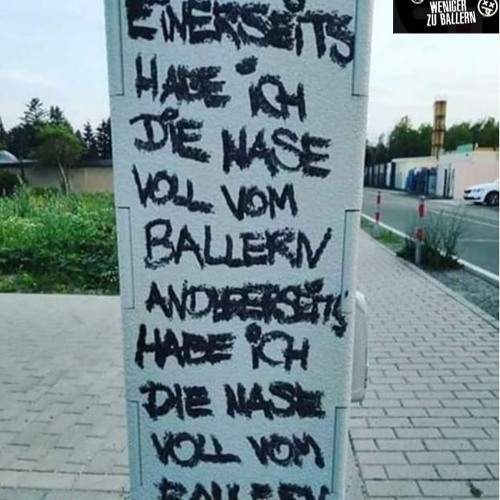 WENIGER
ZU BALLERN
EINERSEITS
HABE ICH
DIE NASE
VOLL VOM
BALLERN
ANDERERSEITS
HABE ICH
DIE NASE
VOLL VOM
BALLERN